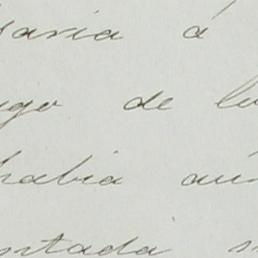 saria á
go de lo
habia aún
ntada